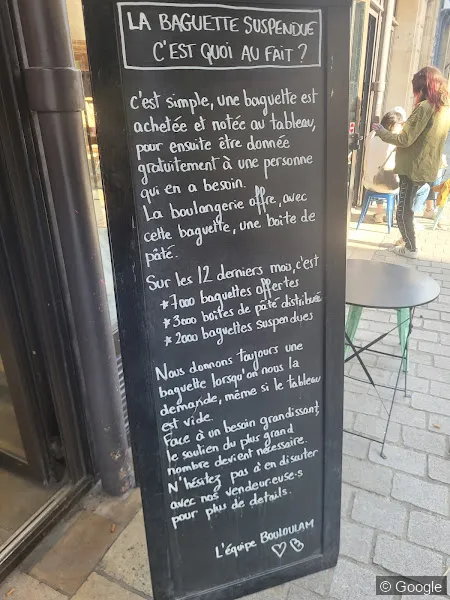 LA BAGUETTE SUSPENDUE
C'EST QUOI AU FAIT ?
C'est simple, une baguette est
achetée et notée au tableau,
pour ensuite être donnée
gratuitement à une personne
qui en a besoin.
La boulangerie offre, avec
cette baguette, une boite de
pâté.
Sur les 12 derniers mois, c'est
* 7000 baguettes offertes
* 3000 boites de pâté distribuée
* 2000 baguettes suspendues
Nous donnons toujours une
baguette lorsqu'on nous la
demande, même si le tableau
est vide.
Face à un besoin grandissant,
le soutien du plus grand
nombre devient nécessaire.
N'hésitez pas à en discuter
avec nos vendeur·euse·s
pour plus de details.
L'équipe BOULOULAM
© Google